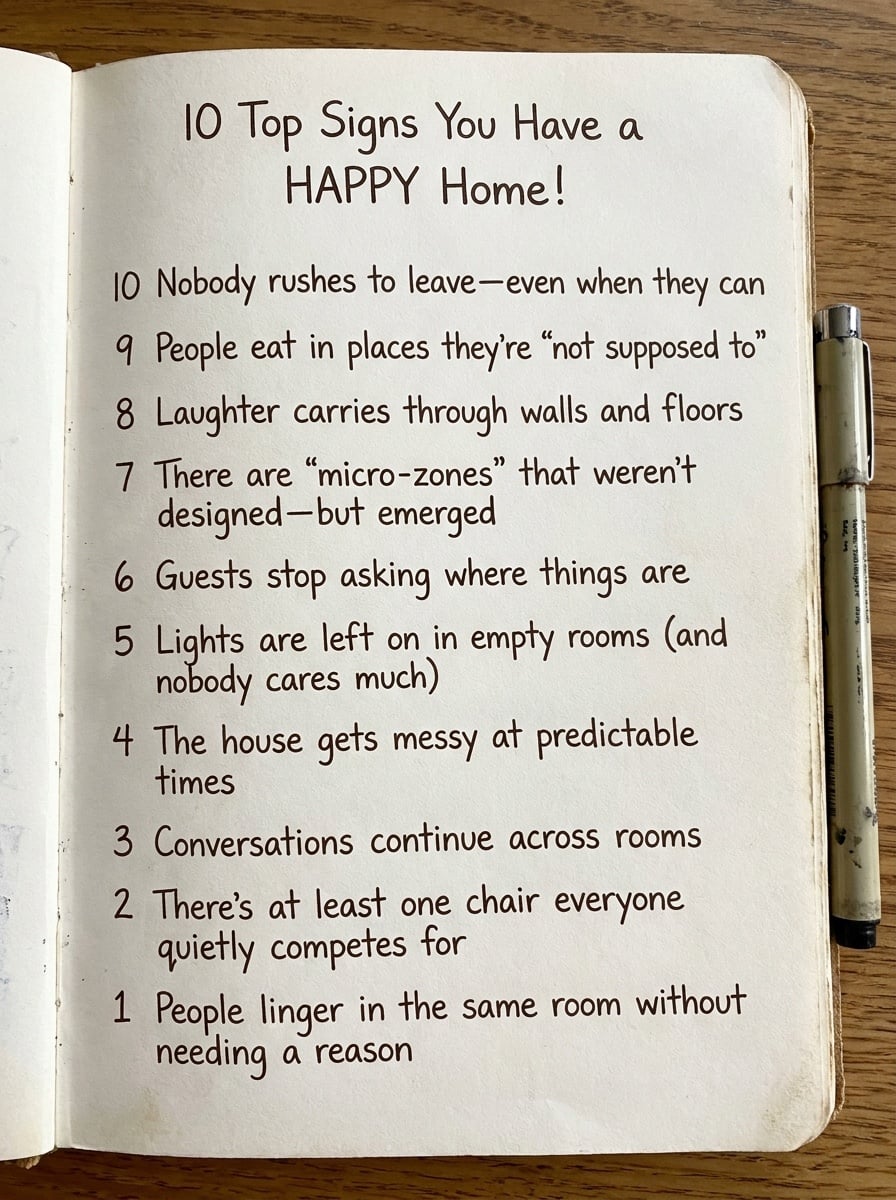 10 Top Signs You Have a
HAPPY Home!
10 Nobody rushes to leave—even when they can
9 People eat in places they're “not supposed to”
8 Laughter carries through walls and floors
7 There are “micro-zones” that weren't
designed—but emerged
6 Guests stop asking where things are
5 Lights are left on in empty rooms (and
nobody cares much)
4 The house gets messy at predictable
times
3 Conversations continue across rooms
2 There's at least one chair everyone
quietly competes for
1 People linger in the same room without
needing a reason